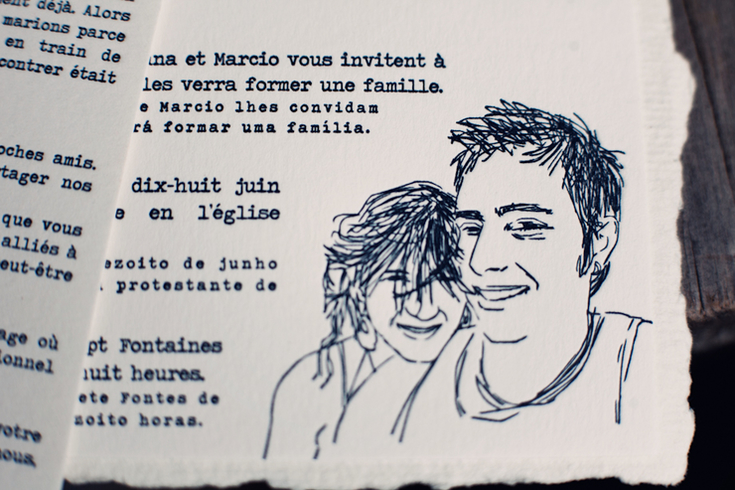 déjà. Alors
marions parce
en train de
contrer était
oches amis.
tager nos
que vous
alliés à
eut-être
age où
ionnel
votre
nous,
na et Marcio vous invitent à
les verra former une famille.
e Marcio lhes convidam
rá formar uma família.
dix-huit juin
e en l'église
ezoito de junho
protestante de
pt Fontaines
huit heures.
ete Fontes de
zoito horas.